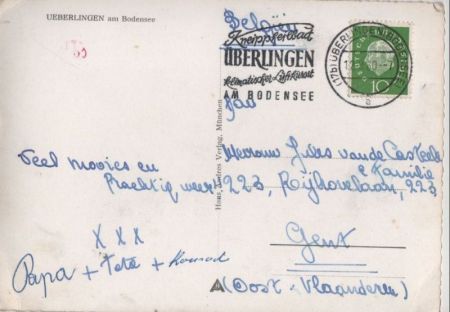 UEBERLINGEN am Bodensee
België
Kneippheilbad
ÜBERLINGEN
klimatischer Luftkurort
AM BODENSEE
(17b) ÜBERLINGEN (BODENSEE)
10
Hans Andres Verlag, München
Veel moois en
Prachtig weer
X X X
Papa + Tata + Konrad
Mevrouw Jules van de Casteele
& Familie
223, Rijhovelaan, 223
Gent
(Oost-Vlaanderen)